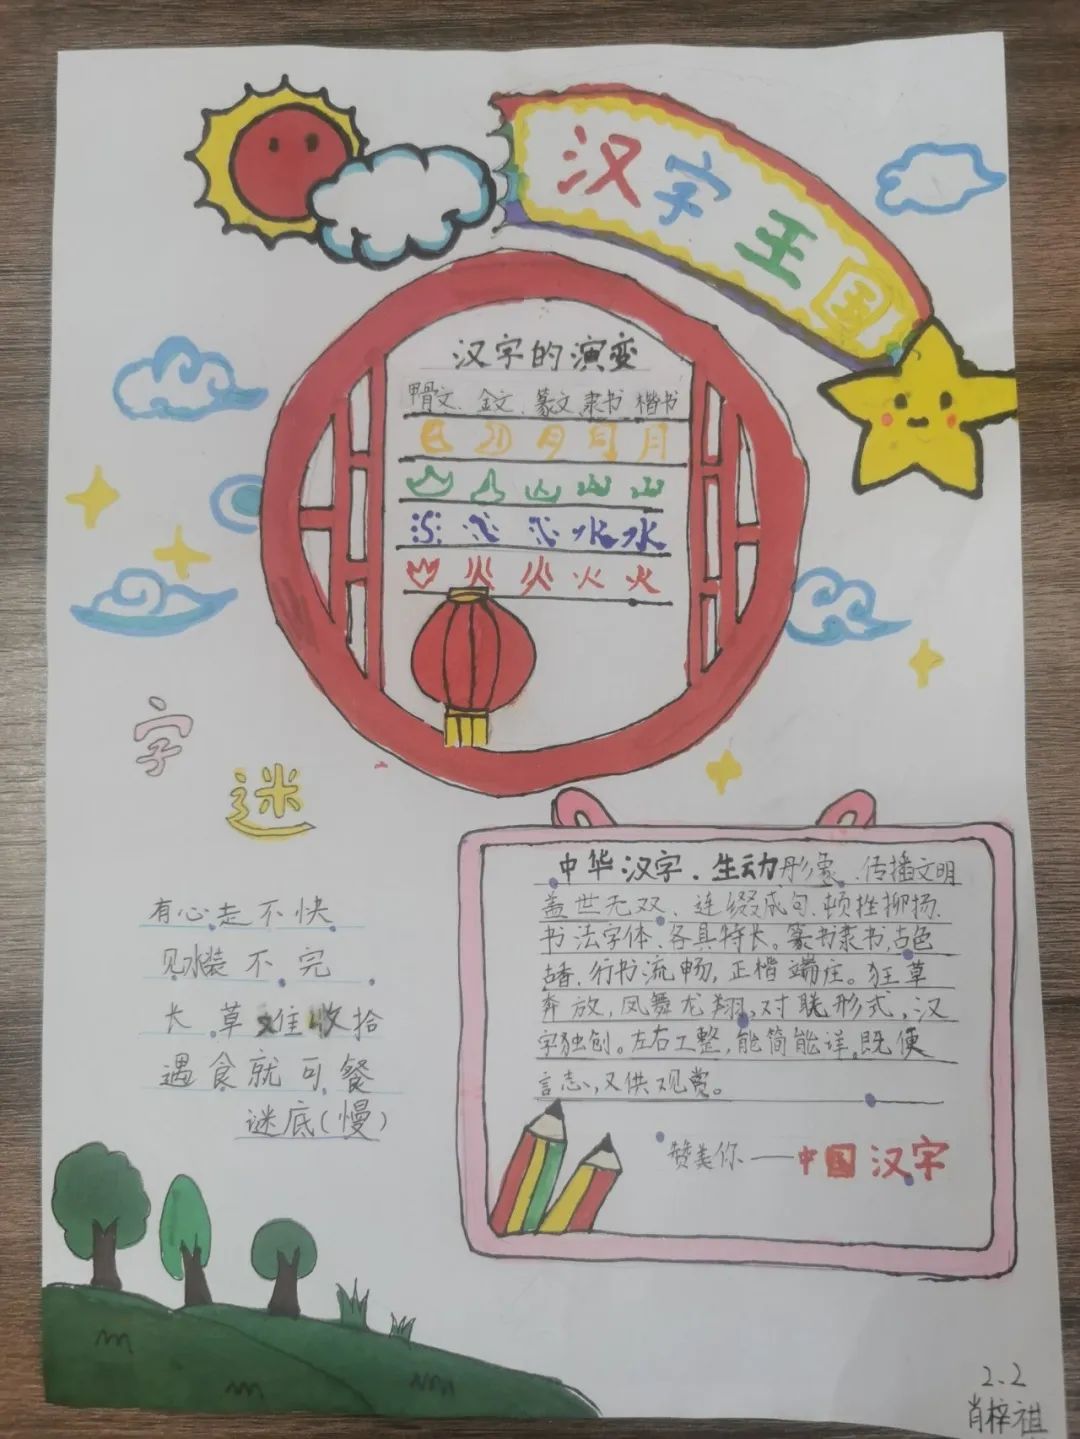 汉字王国
汉字的演变
甲骨文、金文、篆文、隶书、楷书
月
山
水 水
火 火 火 火
字
迷
有心走不快
见水装不完
长草难收拾
遇食就可餐
谜底(慢)
中华汉字、生动形象、传播文明
盖世无双、连缀成句、顿挫抑扬、
书法字体、各具特长。篆书隶书,古色
古香,行书流畅,正楷端庄。狂草
奔放,凤舞龙翔,对联形式,汉
字独创。左右工整,能简能详,既便
言志、又供观赏。
赞美你——中国汉字
2.2
肖梓祺